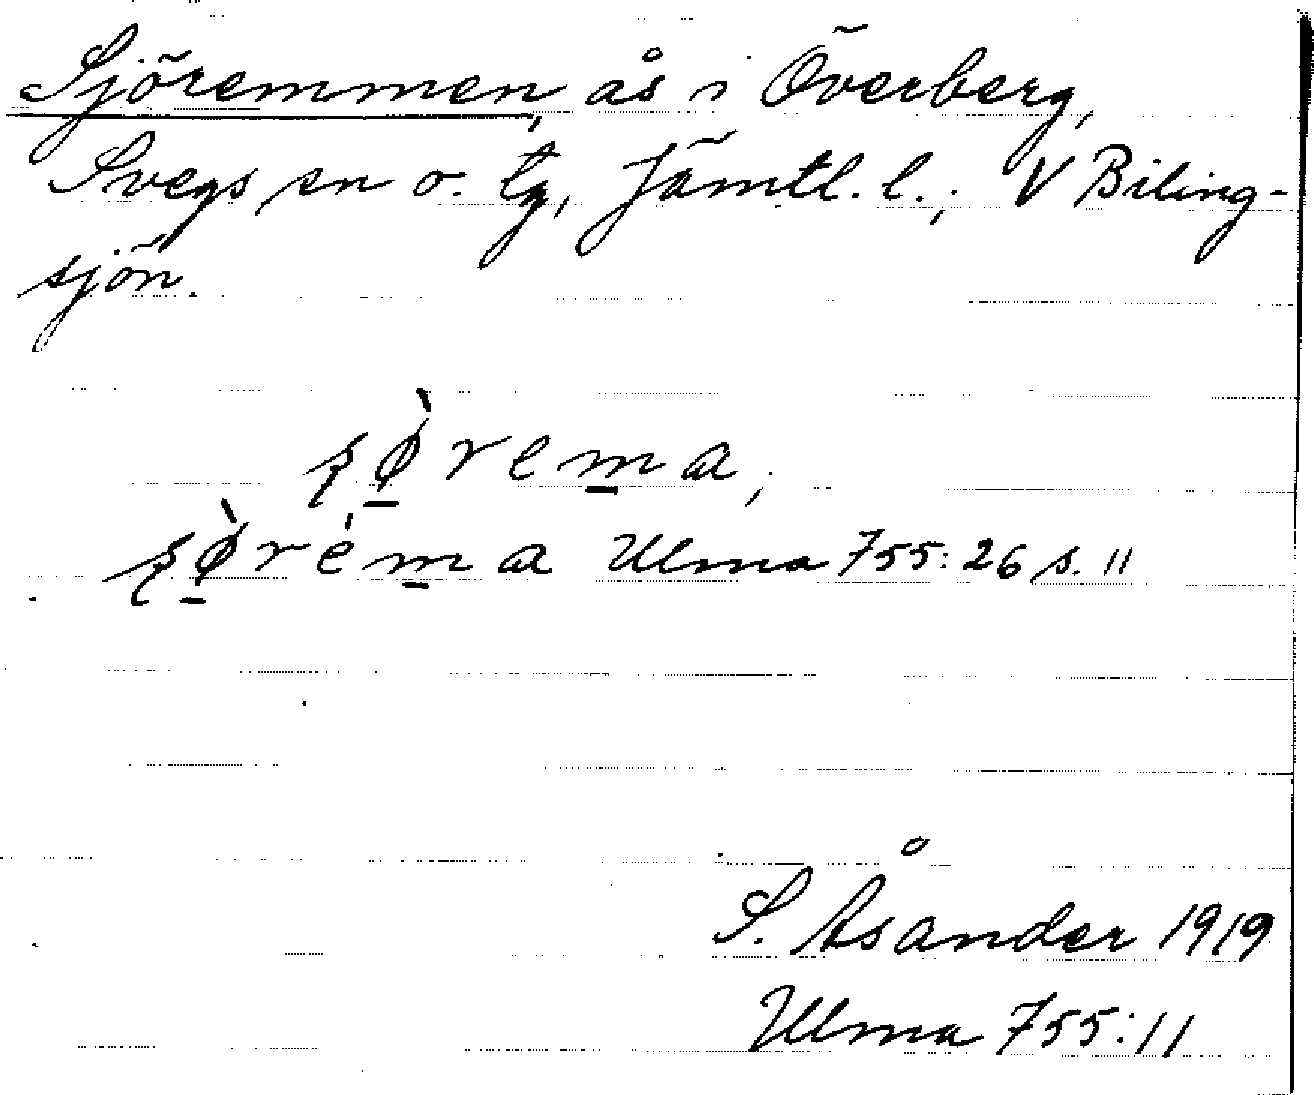 Sjöremmen, ås i Överberg,
Svegs sn o. tg, Jämtl. l.; V Biling-
sjön.
ʂø̀rema,
ʂø̀réma Ulma 755:26 s. 11
S. Åsander 1919
Ulma 755:11